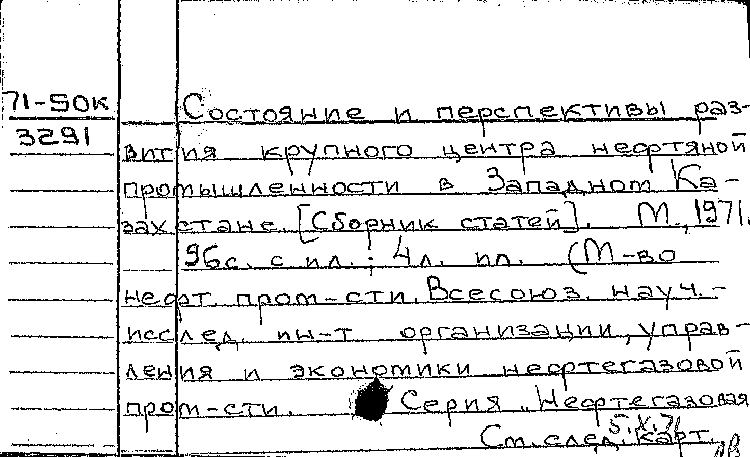 71-50К
3291
Состояние и перспективы раз-
вития крупного центра нефтяной
промышленности в Западном Ка-
захстане. [Сборник статей]. М., 1971.
96с. с ил.; 4л. ил. (М-во
нефт. пром-сти. Всесоюз. науч.-
исслед. ин-т организации, управ-
ления и экономики нефтегазовой
пром-сти. Серия „Нефтегазовая
5.X.71
См. след. карт.